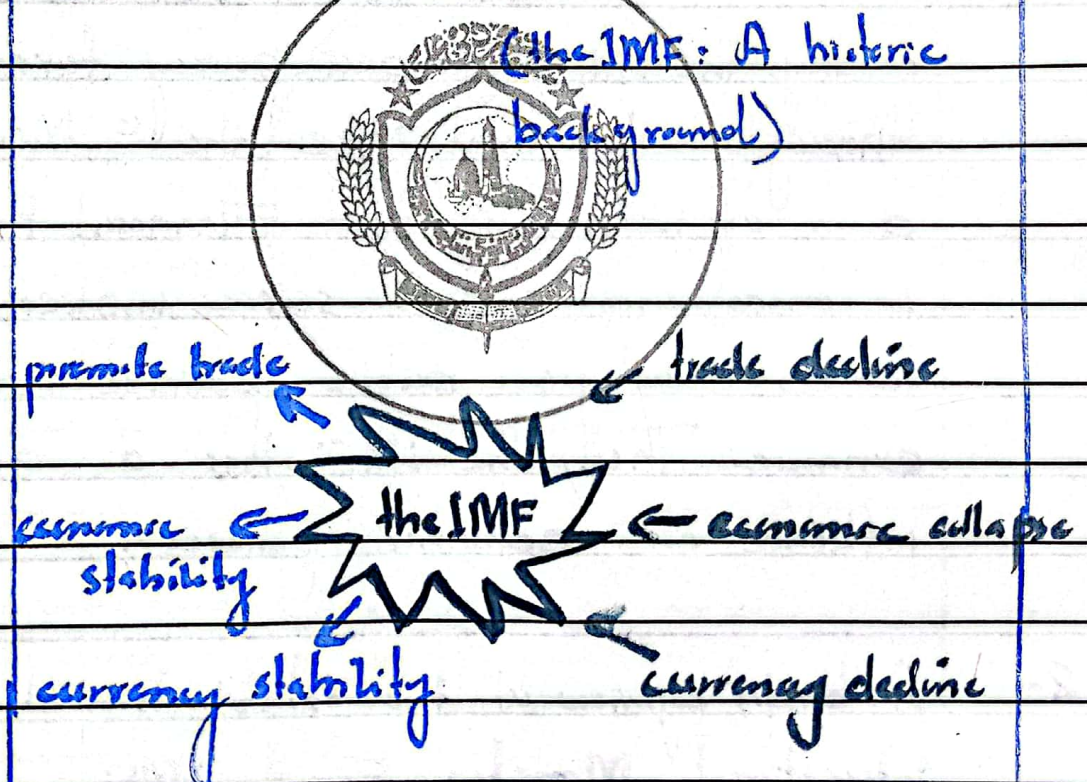 (the IMF: A historic
background)
promote trade
trade decline
the IMF
economic
stability
economic collapse
currency stability
currency decline